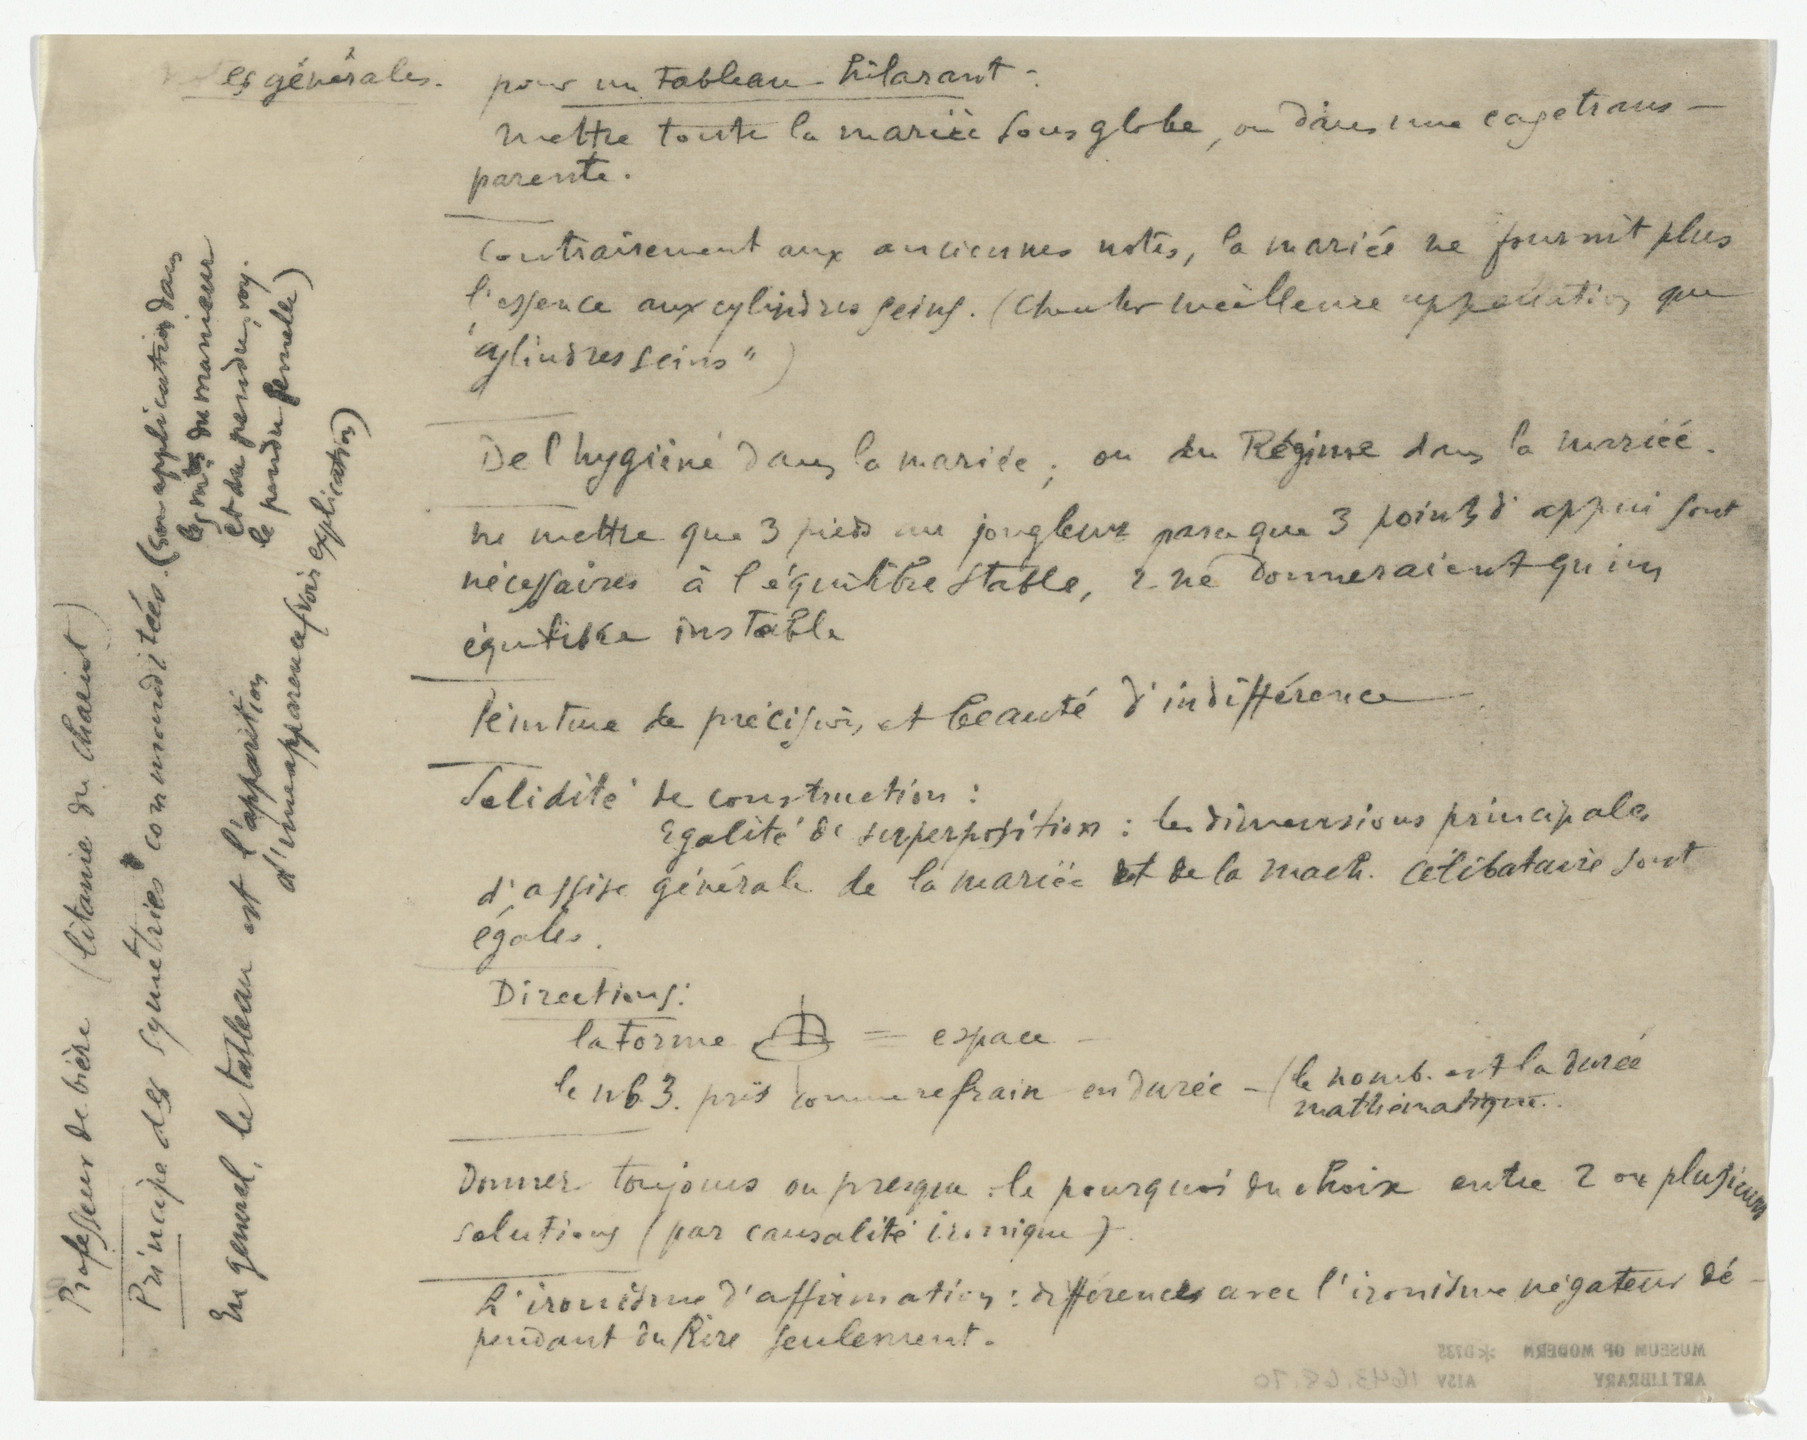 notes générales. pour un Tableau hilarant -
mettre toute la mariée sous globe, ou dans une cage trans-
parente.
Contrairement aux anciennes notes, la mariée ne fournit plus
l'essence aux cylindres seins. (Chercher meilleure appellation que
"cylindres seins")
De l'hygiène dans la mariée; ou du Régime dans la mariée.
ne mettre que 3 pieds au jongleur parce que 3 points d'appui sont
nécessaires à l'équilibre stable, 2 ne donneraient qu'un
équilibre instable
Peinture de précision, et beauté d'indifférence
Solidité de construction :
Egalité de superposition : les dimensions principales
d'assise générale de la mariée et de la mach. célibataire sont
égales.
Directions:
la forme = espace -
le nb 3. pris comme refrain en durée - (le nomb. est la durée
mathématique.
Donner toujours ou presque le pourquoi du choix entre 2 ou plusieurs
solutions (par causalité ironique)
L'ironisme d'affirmation : différences avec l'ironisme négateur dé-
pendant du Rire seulement.
Professeur de bière (litanie du chariot)
Principe des symétries commanditées. (son application dans
les du manieur
et du pendu, voy.
le pendu femelle)
En général, le tableau est l'apparition
d'une apparence (voir explication)
MUSEUM OF MODERN *D738
ART LIBRARY A12V 1643.68.70